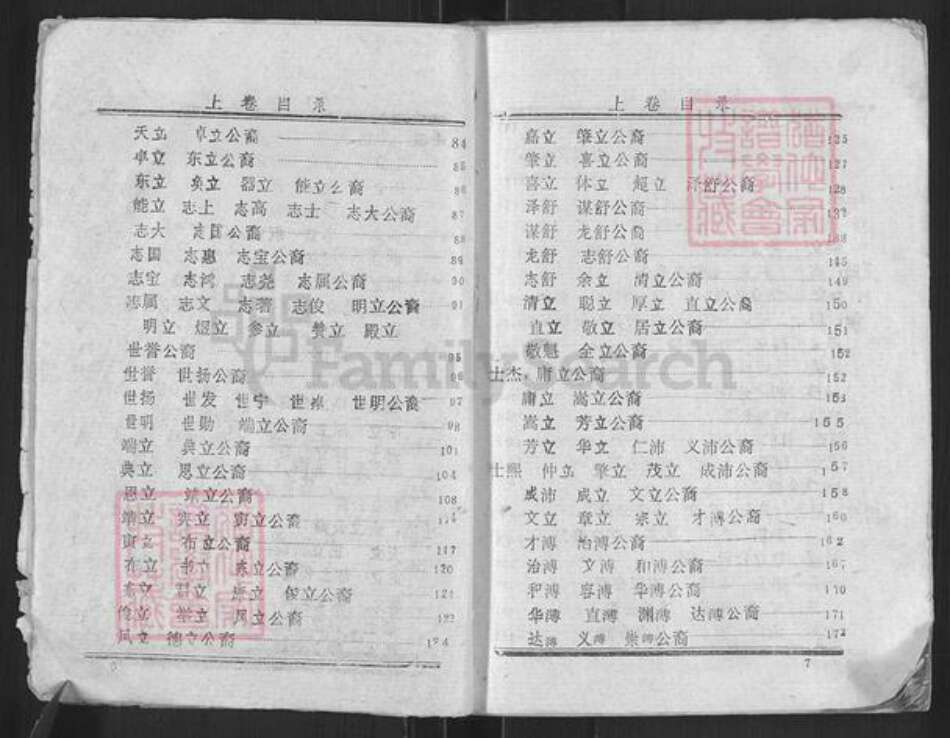 上卷目录
天立 卓立公裔 84
卓立 东立公裔 85
东立 奂立 器立 能立公裔 86
能立 志上 志高 志士 志大公裔 87
志大 志国公裔 88
志国 志惠 志宝公裔 89
志宝 志鸿 志尧 志属公裔 90
志属 志文 志著 志俊 明立公裔 91
明立 煜立 参立 赞立 殿立
世誉公裔 95
世誉 世扬公裔 96
世扬 世发 世宁 世 世明公裔 97
世明 世勋 端立公裔 98
端立 典立公裔 101
典立 思立公裔 104
思立 靖立公裔 108
靖立 宾立 寅立公裔 114
寅立 布立公裔 117
布立 立公裔 120
立 君立 立 保立公裔 121
立 凤立公裔 122
凤立 德立公裔 124
6
上卷目录
嘉立 肇立公裔 125
肇立 喜立公裔 127
喜立 体立 超立 泽舒公裔 128
泽舒 谋舒公裔 132
谋舒 龙舒公裔 138
龙舒 志舒公裔 145
志舒 余立 清立公裔 149
清立 聪立 厚立 直立公裔 150
直立 敬立 居立公裔 151
敬魁 全立公裔 152
士杰，庸立公裔 152
庸立 嵩立公裔 153
嵩立 芳立公裔 155
芳立 华立 仁沛 义沛公裔 156
士熙 仲立 擎立 茂立 成沛公裔 157
成沛 成立 文立公裔 158
文立 章立 宗立 才溥公裔 160
才溥 治溥公裔 162
治溥 文溥 和溥公裔 167
和溥 容溥 华溥公裔 170
华溥 直溥 渊溥 达溥公裔 171
达溥 义溥 崇溥公裔 172
7
FamilySearch